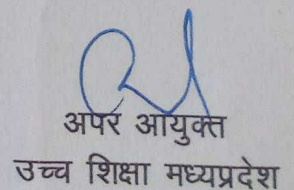 अपर आयुक्त
उच्च शिक्षा मध्यप्रदेश